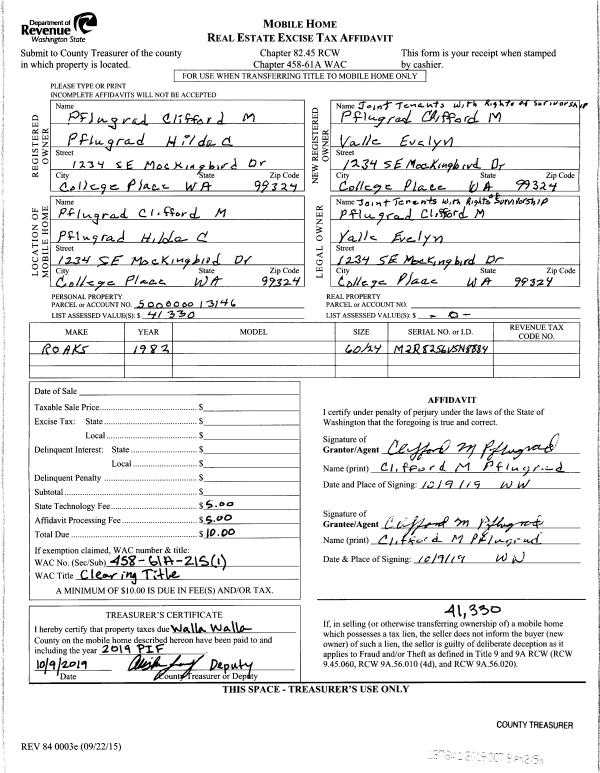 Department of
Revenue
Washington State
MOBILE HOME
REAL ESTATE EXCISE TAX AFFIDAVIT
Submit to County Treasurer of the county
in which property is located.
Chapter 82.45 RCW
Chapter 458-61A WAC
This form is your receipt when stamped
by cashier.
FOR USE WHEN TRANSFERRING TITLE TO MOBILE HOME ONLY
PLEASE TYPE OR PRINT
INCOMPLETE AFFIDAVITS WILL NOT BE ACCEPTED
REGISTERED OWNER
Name
Pflugrad Clifford M
Pflugrad Hilda C
Street
1234 SE Mockingbird Dr
City State Zip Code
College Place WA 99324
NEW REGISTERED OWNER
Name Joint Tenants with Rights of Survivorship
Pflugrad Clifford M
Valle Evelyn
Street
1234 SE Mockingbird Dr
City State Zip Code
College Place WA 99324
LOCATION OF MOBILE HOME
Name
Pflugrad Clifford M
Pflugrad Hilda C
Street
1234 SE Mockingbird Dr
City State Zip Code
College Place WA 99324
LEGAL OWNER
Name Joint Tenants with Rights of Survivorship
Pflugrad Clifford M
Valle Evelyn
Street
1234 SE Mockingbird Dr
City State Zip Code
College Place WA 99324
PERSONAL PROPERTY
PARCEL or ACCOUNT NO. 500000013146
LIST ASSESSED VALUE(S): $ 41330
REAL PROPERTY
PARCEL or ACCOUNT NO.
LIST ASSESSED VALUE(S): $ -0-
MAKE YEAR MODEL SIZE SERIAL NO. or I.D. REVENUE TAX CODE NO.
ROAKS 1982 60/24 M2R82S6V5N8884
Date of Sale
Taxable Sale Price $
Excise Tax: State $
Local $
Delinquent Interest: State $
Local $
Delinquent Penalty $
Subtotal $
State Technology Fee $ 5.00
Affidavit Processing Fee $ 5.00
Total Due $ 10.00
If exemption claimed, WAC number & title:
WAC No. (Sec/Sub) 458-61A-215(1)
WAC Title Clearing Title
A MINIMUM OF $10.00 IS DUE IN FEE(S) AND/OR TAX.
AFFIDAVIT
I certify under penalty of perjury under the laws of the State of
Washington that the foregoing is true and correct.
Signature of
Grantor/Agent Clifford M Pflugrad
Name (print) Clifford M Pflugrad
Date and Place of Signing: 10/9/19 WW
Signature of
Grantee/Agent Clifford M Pflugrad
Name (print) Clifford M Pflugrad
Date & Place of Signing: 10/9/19 WW
TREASURER'S CERTIFICATE
I hereby certify that property taxes due Walla Walla
County on the mobile home described hereon have been paid to and
including the year 2019 PIF
10/9/2019 Deputy
Date County Treasurer or Deputy
41,330
If, in selling (or otherwise transferring ownership of) a mobile home
which possesses a tax lien, the seller does not inform the buyer (new
owner) of such a lien, the seller is guilty of deliberate deception as it
applies to Fraud and/or Theft as defined in Title 9 and 9A RCW (RCW
9.45.060, RCW 9A.56.010 (4d), and RCW 9A.56.020).
THIS SPACE - TREASURER'S USE ONLY
COUNTY TREASURER
REV 84 0003e (09/22/15)